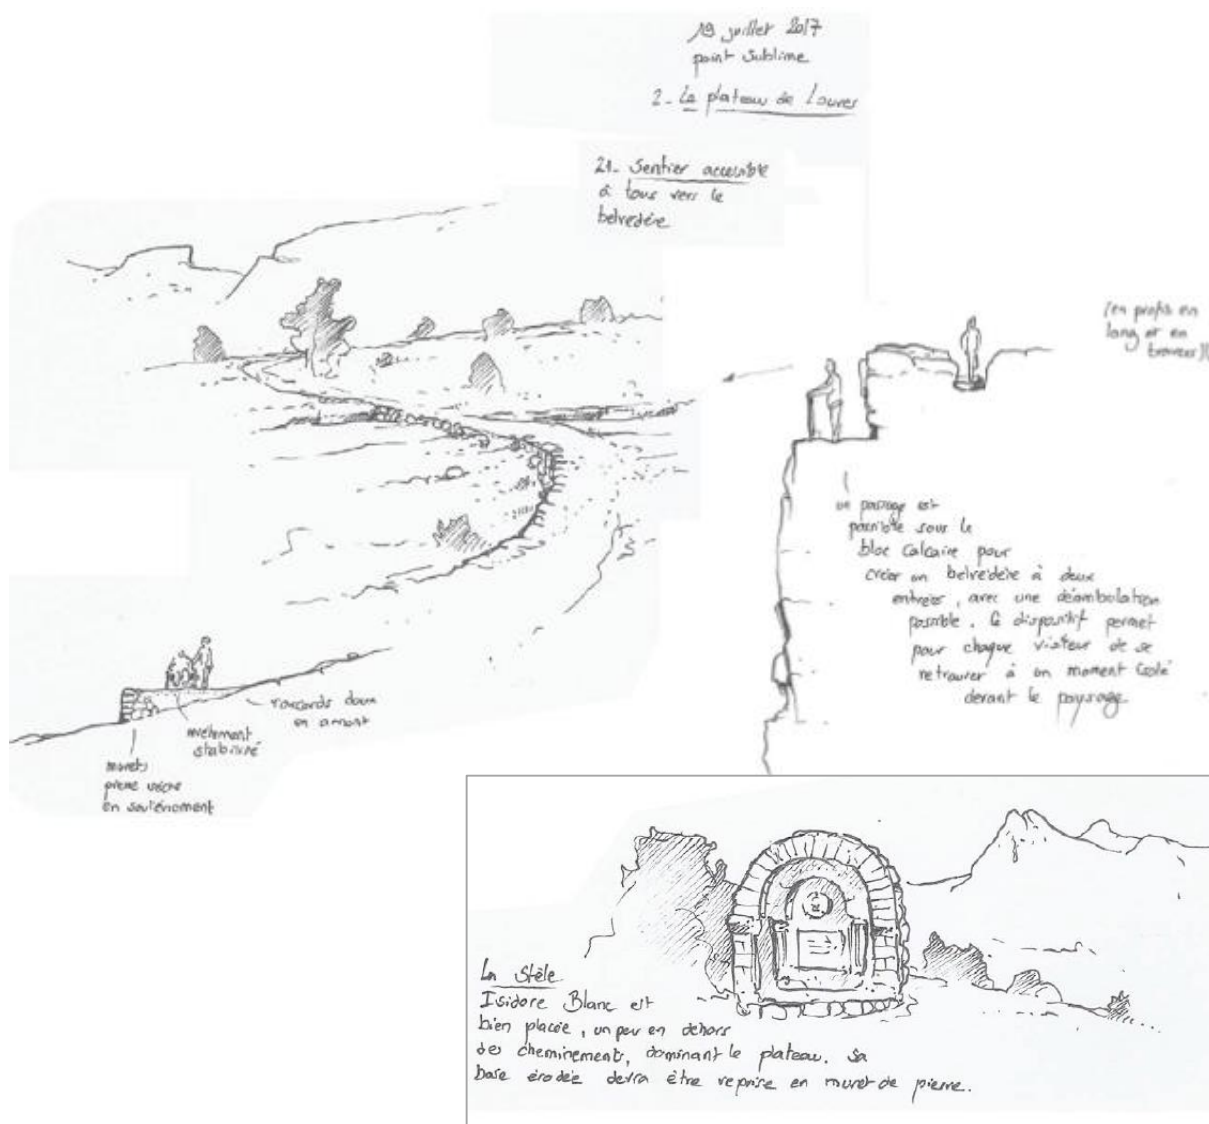 19 juillet 2017
point sublime
2 - Le plateau de Louves
21 - Sentier accessible
à tous vers le
belvédère
(en profils en
long et en
travers))
un passage est
possible sous le
bloc calcaire pour
créer un belvédère à deux
entrées, avec une déambulation
possible. Ce dispositif permet
pour chaque visiteur de se
retrouver à un moment isolé
devant le paysage
raccords doux
en amont
revêtement
stabilisé
murets
pierre sèche
en soutènement
La Stèle
Isidore Blanc est
bien placée, un peu en dehors
des cheminements, dominant le plateau. Sa
base érodée devra être reprise en muret de pierre.